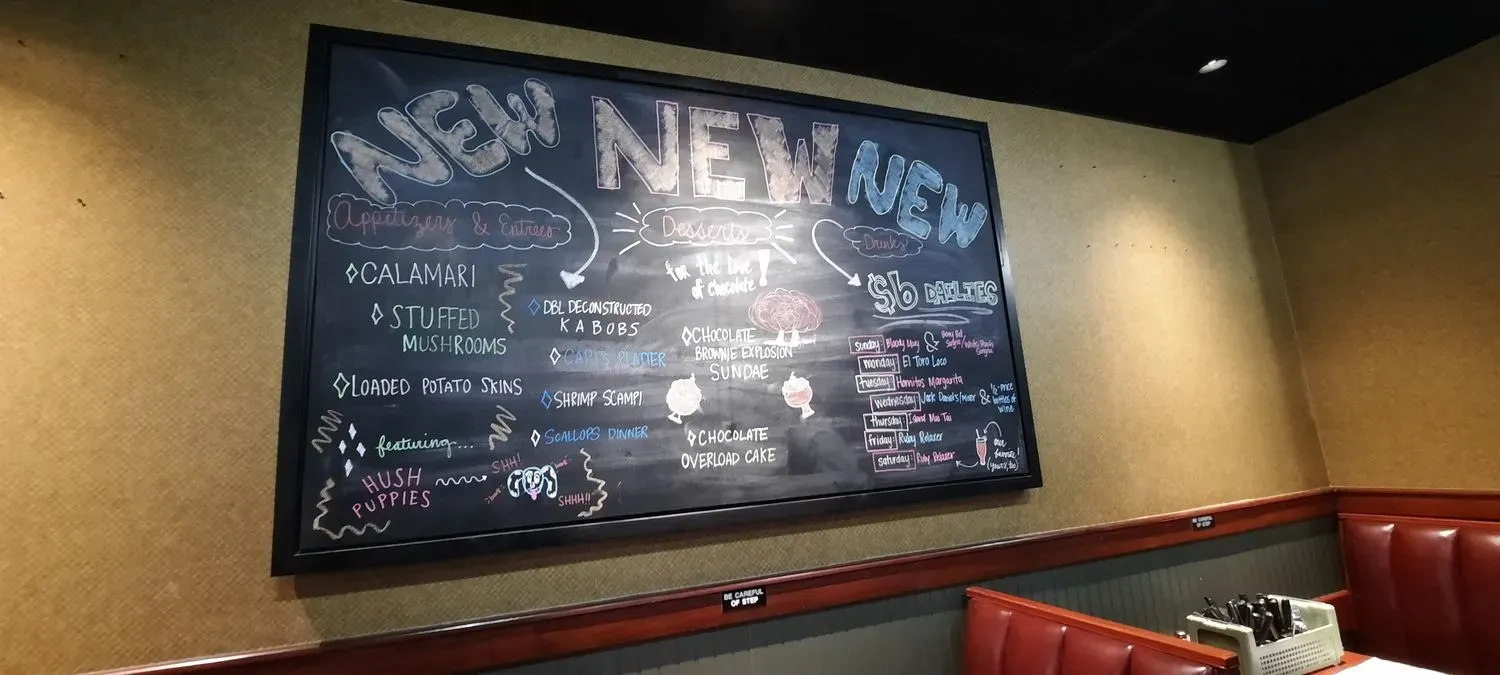 NEW
NEW
NEW
Appetizers & Entrées
CALAMARI
STUFFED
MUSHROOMS
LOADED POTATO SKINS
featuring...
HUSH
PUPPIES
SHH!
SHHH!!
DBL DECONSTRUCTED
KABOBS
CAPT'S PLATTER
SHRIMP SCAMPI
SCALLOPS DINNER
Desserts
for the love
of chocolate!
CHOCOLATE
BROWNIE EXPLOSION
SUNDAE
CHOCOLATE
OVERLOAD CAKE
Drinks
$6 DAILIES
sunday: Bloody Mary &
monday: El Toro Loco
tuesday: Hornitos Margarita
wednesday: Jack Daniels/miner & ½-price
bottles of
wine
thursday: Island Mai Tai
friday: Ruby Relaxer
saturday: Ruby Relaxer
our
favorite!
BE CAREFUL
OF STEP
BE CAREFUL
OF STEP